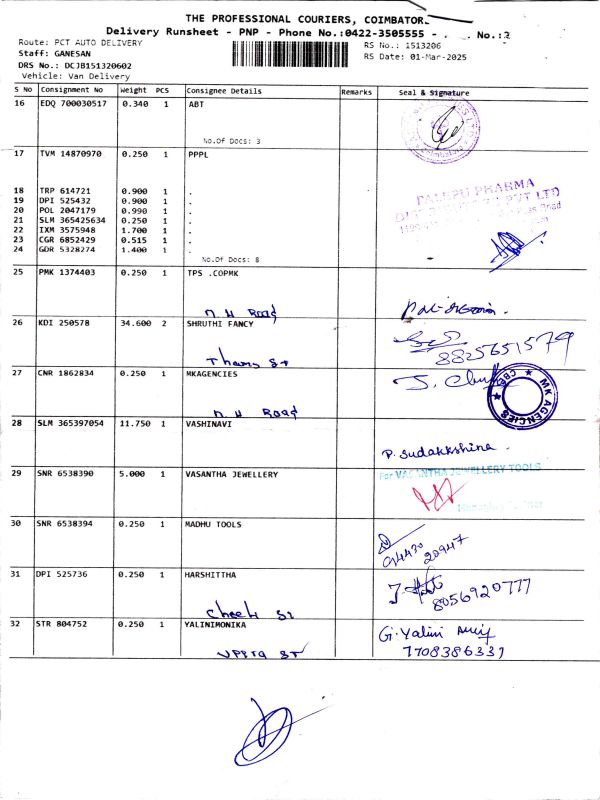 THE PROFESSIONAL COURIERS, COIMBATOR
Delivery Runsheet - PNP - Phone No.:0422-3505555 - No.:2
Route: PCT AUTO DELIVERY RS No.: 1513206
Staff: GANESAN RS Date: 01-Mar-2025
DRS No.: DCJB151320602
Vehicle: Van Delivery
S No Consignment No Weight PCS Consignee Details Remarks Seal & Signature
16 EDQ 700030517 0.340 1 ABT
No.Of Docs: 3
17 TVM 14870970 0.250 1 PPPL
18 TRP 614721 0.900 1 .
PALEPU PHARMA
19 DPI 525432 0.900 1 .
PVT LTD
20 POL 2047179 0.990 1 .
21 SLM 365425634 0.250 1 .
22 IXM 3575948 1.700 1 .
23 CGR 6852429 0.515 1 .
24 GDR 5328274 1.400 1 .
No.Of Docs: 8
25 PMK 1374403 0.250 1 TPS .COPMK
N H Road
26 KDI 250578 34.600 2 SHRUTHI FANCY
8825651579
27 CNR 1862834 0.250 1 MKAGENCIES
MK AGENCIES
N H Road
28 SLM 365397054 11.750 1 VASHINAVI
P. Sudakkshina
29 SNR 6538390 5.000 1 VASANTHA JEWELLERY
For VASANTHA JEWELLERY TOOLS
30 SNR 6538394 0.250 1 MADHU TOOLS
94430
20947
31 DPI 525736 0.250 1 HARSHITTHA
8056920777
32 STR 804752 0.250 1 YALINIMONIKA
G. Yalini
7708386331